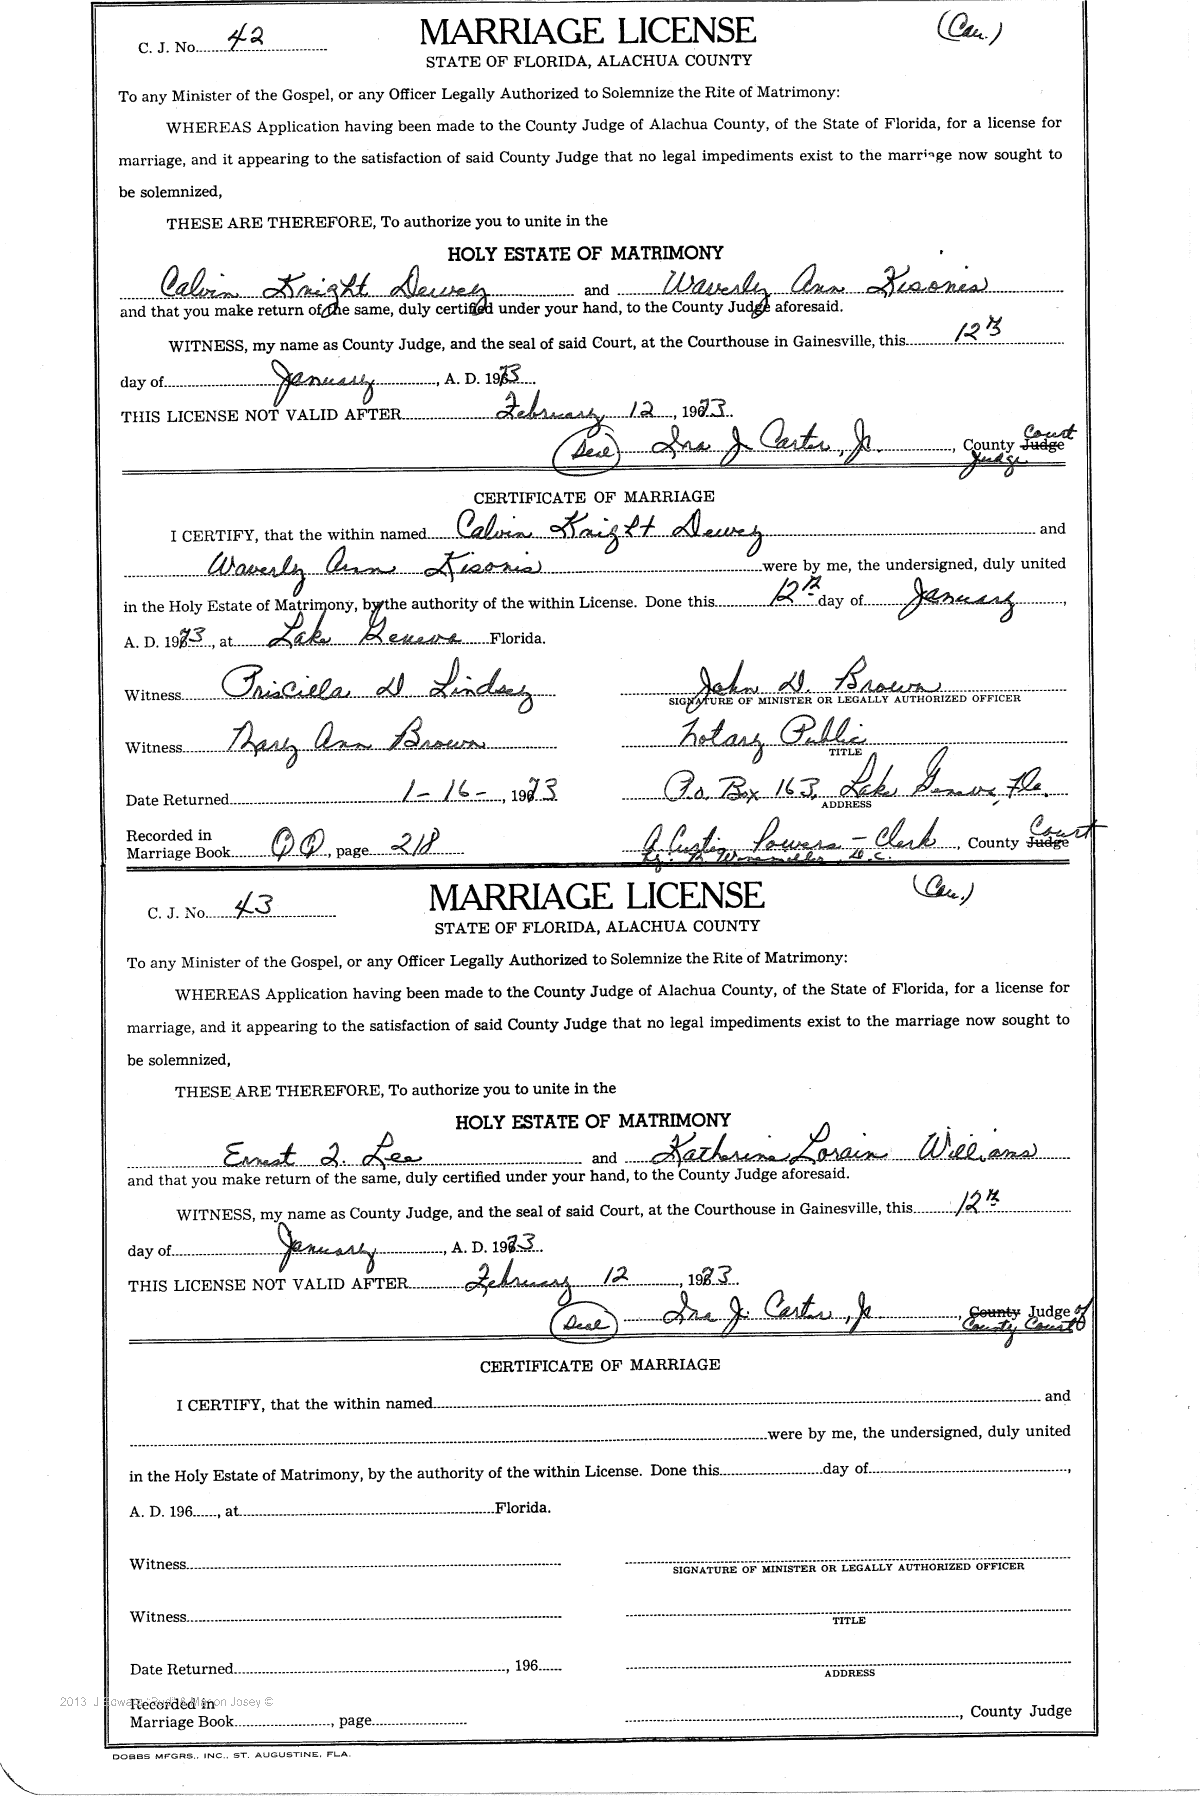 C. J. No. 42
MARRIAGE LICENSE
(Cau.)
STATE OF FLORIDA, ALACHUA COUNTY
To any Minister of the Gospel, or any Officer Legally Authorized to Solemnize the Rite of Matrimony:
WHEREAS Application having been made to the County Judge of Alachua County, of the State of Florida, for a license for
marriage, and it appearing to the satisfaction of said County Judge that no legal impediments exist to the marriage now sought to
be solemnized,
THESE ARE THEREFORE, To authorize you to unite in the
HOLY ESTATE OF MATRIMONY
Calvin Knight Dewey and Waverly Ann Kisonis
and that you make return of the same, duly certified under your hand, to the County Judge aforesaid.
WITNESS, my name as County Judge, and the seal of said Court, at the Courthouse in Gainesville, this 12th
day of January, A. D. 1973
THIS LICENSE NOT VALID AFTER February 12, 1973
(Seal) Ira J. Carter, Jr., County Judge Court
Judge
CERTIFICATE OF MARRIAGE
I CERTIFY, that the within named Calvin Knight Dewey and
Waverly Ann Kisonis were by me, the undersigned, duly united
in the Holy Estate of Matrimony, by the authority of the within License. Done this 12th day of January,
A. D. 1973, at Lake Geneva Florida.
Witness Priscilla D Lindsey John D. Brown
SIGNATURE OF MINISTER OR LEGALLY AUTHORIZED OFFICER
Witness Mary Ann Brown Notary Public
TITLE
Date Returned 1-16-, 1973 P.O. Box 163, Lake Geneva, Fla.
ADDRESS
Recorded in
Marriage Book QQ, page 218 Curtis Powers - Clerk, County Judge Court
D.C.
C. J. No. 43
MARRIAGE LICENSE
(Cau.)
STATE OF FLORIDA, ALACHUA COUNTY
To any Minister of the Gospel, or any Officer Legally Authorized to Solemnize the Rite of Matrimony:
WHEREAS Application having been made to the County Judge of Alachua County, of the State of Florida, for a license for
marriage, and it appearing to the satisfaction of said County Judge that no legal impediments exist to the marriage now sought to
be solemnized,
THESE ARE THEREFORE, To authorize you to unite in the
HOLY ESTATE OF MATRIMONY
Ernest I. Lee and Katherine Lorain Williams
and that you make return of the same, duly certified under your hand, to the County Judge aforesaid.
WITNESS, my name as County Judge, and the seal of said Court, at the Courthouse in Gainesville, this 12th
day of January, A. D. 1973
THIS LICENSE NOT VALID AFTER February 12, 1973
(Seal) Ira J. Carter, Jr, County Judge of
County Court
CERTIFICATE OF MARRIAGE
I CERTIFY, that the within named and
were by me, the undersigned, duly united
in the Holy Estate of Matrimony, by the authority of the within License. Done this day of,
A. D. 196, at Florida.
Witness
SIGNATURE OF MINISTER OR LEGALLY AUTHORIZED OFFICER
Witness
TITLE
Date Returned, 196
ADDRESS
2013 J Edward "Bud" & Marion Josey ©
Recorded in
Marriage Book, page, County Judge
DOBBS MFGRS., INC., ST. AUGUSTINE, FLA.